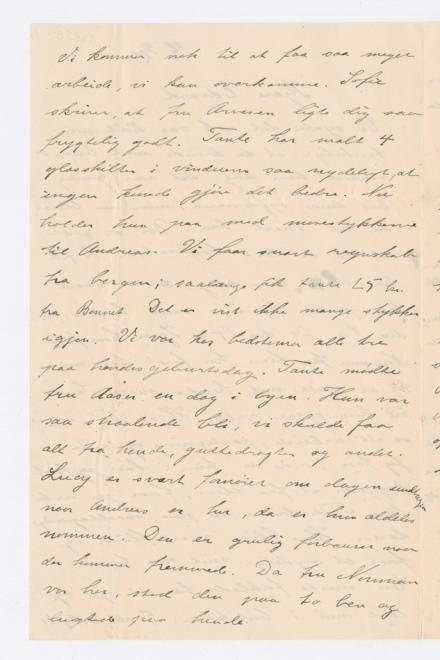 Vi kommer nok til at faa saa meget
arbeide, vi kan overkomme. Sofie
skriver, at fru Arvesen ligte dig saa
frygtelig godt. Tante har malt 4
glasskilter i vinduerne saa nydeligt, at
ingen kunde gjøre det bedre. Nu
holder hun paa med
til Andreas. Vi faar snart regnskab
fra bergen; saalænge fik tante 25 kr.
fra Bennet. Det er vist ikke mange stykker
igjen. Vi var hos bedstemor alle tre
paa hendes geburtsdag. Tante mødte
fru Aasen en dag i byen. Hun var
saa straalende bli, vi skulde faa
alt fra hende, og andet.
Lucy er svært fornøiet om dagen undtagen
naar Andreas er her, da er hun aldeles
nommen. Den er grulig forbauset naar
der kommer fremmede. Da fru Norman
var her, stod den paa to ben og
lugted paa hende.